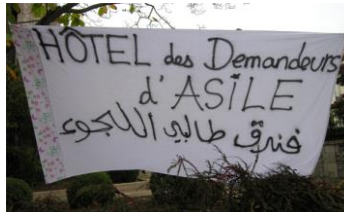 HÔTEL des Demandeurs
d'ASILE
فندق طالبي اللجوء